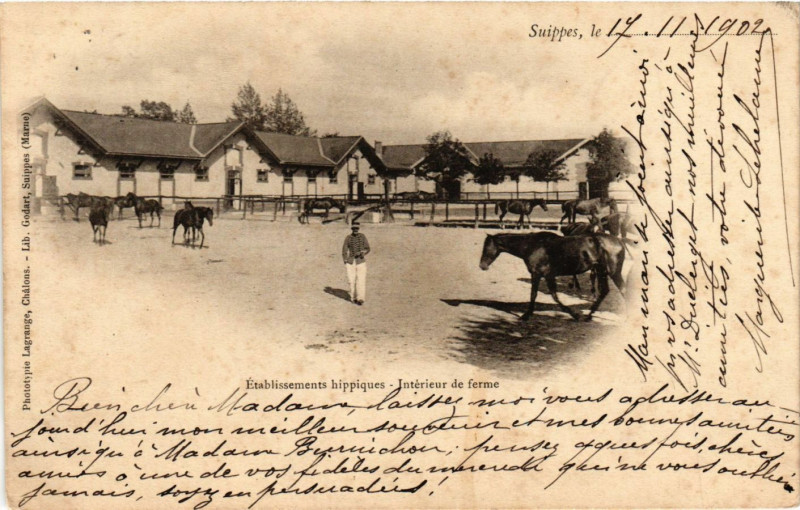 Suippes, le 17. 11. 1902
Phototypie Lagrange, Châlons. - Lib. Godart, Suippes (Marne)
Établissements hippiques - Intérieur de ferme
Bien chère Madame, laissez moi vous adresser au-
jourd'hui mon meilleur souvenir et mes bonnes amitiés
ainsi qu'à Madame : pensez quques fois, chères
amies à une de vos fidèles du mercredi qui ne vous oublie
jamais, soyez en persuadées!
Mon mari se joint à moi
pr vs adresser ainsi qu'à
Mr nos meilleures
amitiés, votre dévouée
Marguerite